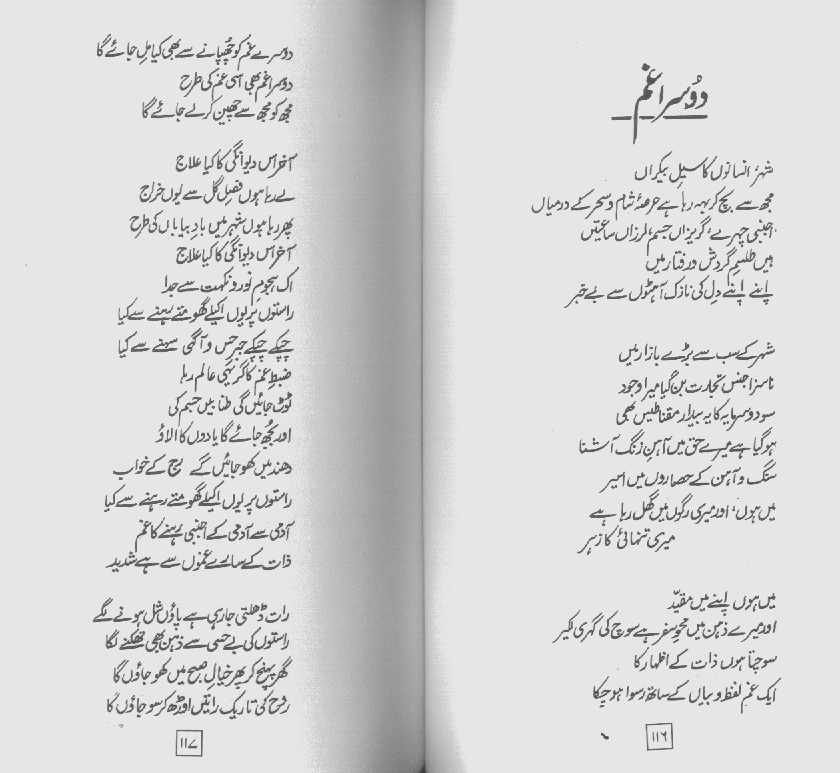 دوسرا غم
شہر، انسانوں کا سیلِ بیکراں
مجھ سے بچ کر بہہ رہا ہے عرصۂ شام و سحر کے درمیاں
اجنبی چہرے، گریزاں جسم، لرزاں ساعتیں
ہیں طلسمِ گردش و رفتار میں
اپنے اپنے دل کی نازک آہٹوں سے بے خبر
شہر کے سب سے بڑے بازار میں
ناسزا جنسِ تجارت بن گیا میرا وجود
سود و سرمایہ کا یہ بیدار مقناطیس بھی
ہو گیا ہے میرے حق میں آہنِ زنگ آشنا
سنگ و آہن کے حصاروں میں اسیر
میں ہوں، اور میری رگوں میں گھل رہا ہے
میری تنہائی کا زہر
میں ہوں اپنے میں مقیّد
اور میرے ذہن میں محوِ سفر ہے سوچ کی گہری لکیر
سوچتا ہوں ذات کے اظہار کا
ایک غم لفظ و بیاں کے ساتھ رسوا ہو چکا
۱۱۶
دوسرے غم کو چھپانے سے بھی کیا مل جائے گا
دوسرا غم بھی اسی غم کی طرح
مجھ کو مجھ سے چھین کر لے جائے گا
آخر اس دیوانگی کا کیا علاج
لے رہا ہوں فصلِ گل سے یوں خراج
پھر رہا ہوں شہر میں بادِ بیاباں کی طرح
آخر اس دیوانگی کا کیا علاج
اک ہجومِ نور و نکہت سے جدا
راستوں پر یوں اکیلے گھومتے رہنے سے کیا
چپکے چپکے جبرِ حس و آگہی سہنے سے کیا
ضبطِ غم کا گر یہی عالم رہا
ٹوٹ جائیں گی طنابیں جسم کی
اور بجھ جائے گا یادوں کا الاؤ
دھند میں کھو جائیں گے سچ کے خواب
راستوں پر یوں اکیلے گھومتے رہنے سے کیا
آدمی سے آدمی کے اجنبی رہنے کا غم
ذات کے سارے غموں سے ہے شدید
رات ڈھلتی جا رہی ہے پاؤں شل ہونے لگے
راستوں کی بے حسی سے ذہن بھی تھکنے لگا
گھر پہنچ کر پھر خیالِ صبح میں کھو جاؤں گا
روح کی تاریک راتیں اوڑھ کر سو جاؤں گا
۱۱۷